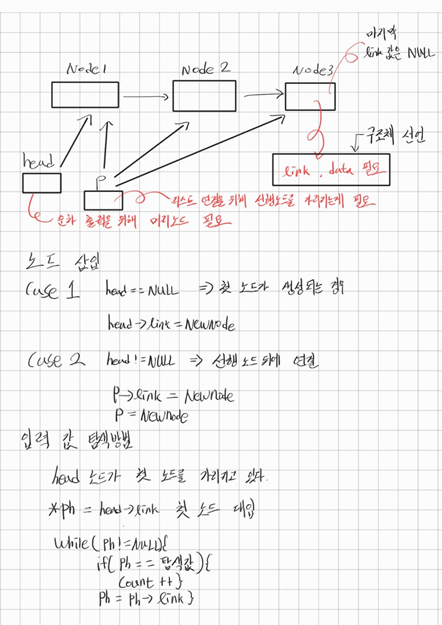 마지막
link 값은 NULL
Node1
Node 2
Node3
구조체 선언
head
P
link, data 필요
리스트 연결을 위해 선행노드를 가리키는게 필요
순차 출력을 위해 머리노드 필요
노드 삽입
Case 1 head == NULL => 첫 노드가 생성되는 경우
head->link = NewNode
Case 2 head != NULL => 선행 노드 뒤에 연결
P->link = NewNode
P = NewNode
입력 값 탐색방법
head 노드가 첫 노드를 가리키고 있다.
*ph = head->link 첫 노드 대입
while( Ph != NULL){
if( Ph == 탐색값){
Count ++}
Ph = Ph->link}